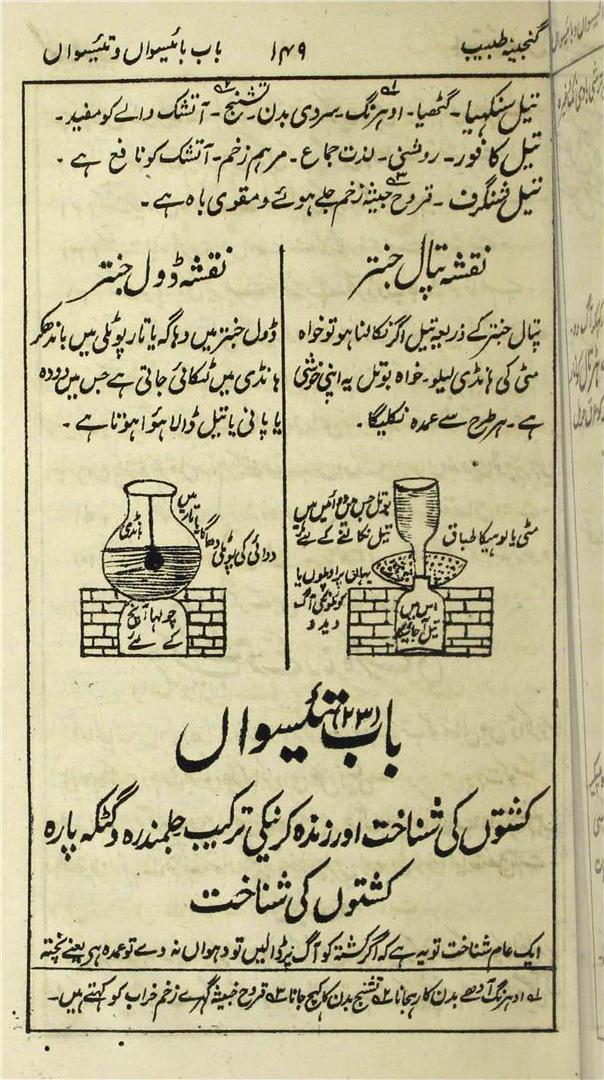 گنجینہ طبیب
۱۴۹
باب بائیسواں و تیئیسواں
تیل سنکھیا۔ گٹھیا۔ اوہرنگ۱؎۔ سردی بدن۔ تشنج۲؎۔ آتشک والے کو مفید۔
تیل کافور۔ روشنی۔ لذت جماع۔ مرہم زخم۔ آتشک کو نافع ہے۔
تیل شنگرف۔ قروح خبیثہ۳؎ زخم جلے ہوئے و مقوی باہ ہے۔
نقشہ پتال جنتر
پتال جنتر کے ذریعہ تیل اگر نکالنا ہو تو خواہ
مٹی کی ہانڈی لیلو۔ خواہ بوتل یہ اپنی خوشی
ہے۔ ہر طرح سے عمدہ نکلیگا۔
بوتل جس میں دوائیں ہیں
تیل نکالنے کے لئے
مٹی یا لوہیکا طباق
یہاں پر اوپلوں یا
کوئلونکی آگ
دیدو
اس میں
تیل آجائیگا
نقشہ ڈول جنتر
ڈول جنتر میں دہاگہ یا تار پوٹلی میں باندھکر
ہانڈی میں لٹکائی جاتی ہے جس میں دودہ
یا پانی یا تیل ڈالا ہوا ہوتا ہے۔
ہانڈی
دھاگا یا تار ہیں
دوائی کی پوٹلی
چولہا آنچ
کے لئے
باب (۲۳) تیئیسواں
کشتوں کی شناخت اور زندہ کرنیکی ترکیب جلمندرہ و گٹکہ پارہ
کشتوں کی شناخت
ایک عام شناخت تو یہ ہے کہ اگر کشتہ کو آگ پر ڈالیں تو دہواں نہ دے تو عمدہ ہی یعنے پختہ
۱؎ اوہرنگ آدھے بدن کا رہجانا ۲؎ تشنج بدن کا کھچ جانا ۳؎ قروح خبیثہ گہرے زخم خراب کو کہتے ہیں۔